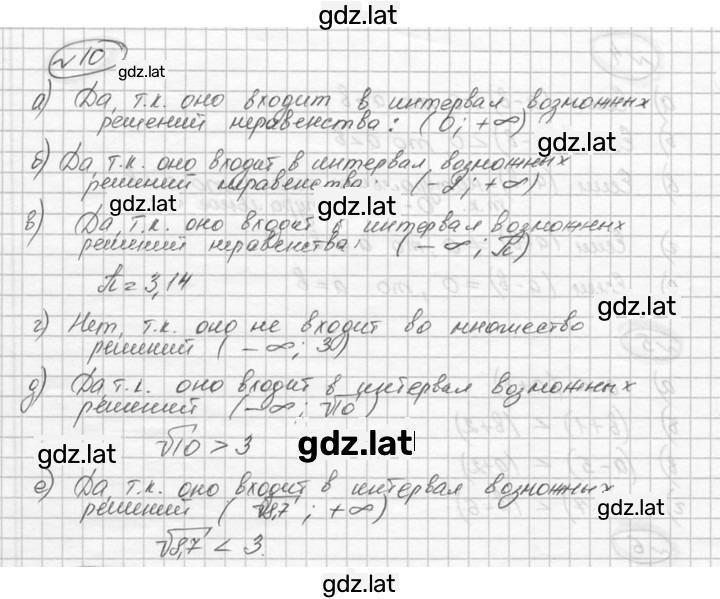 gdz.lat
№10
gdz.lat
а) Да, т.к. оно входит в интервал возможных
решений неравенства: (0; +∞)
gdz.lat
б) Да, т.к. оно входит в интервал возможных
решений неравенства: (-2; +∞)
gdz.lat gdz.lat
в) Да, т.к. оно входит в интервал возможных
решений неравенства: (-∞; π)
gdz.lat
π = 3,14
gdz.lat
г) Нет, т.к. оно не входит во множество
решений (-∞; 3)
д) Да, т.к. оно входит в интервал возможных
решений (-∞; √10)
√10 > 3
gdz.lat gdz.lat
е) Да, т.к. оно входит в интервал возможных
решений (√8,7; +∞)
gdz.lat
√8,7 < 3.
gdz.lat